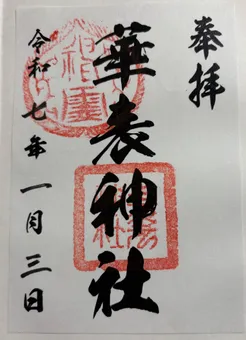 奉拝
華表神社
令和七年一月三日